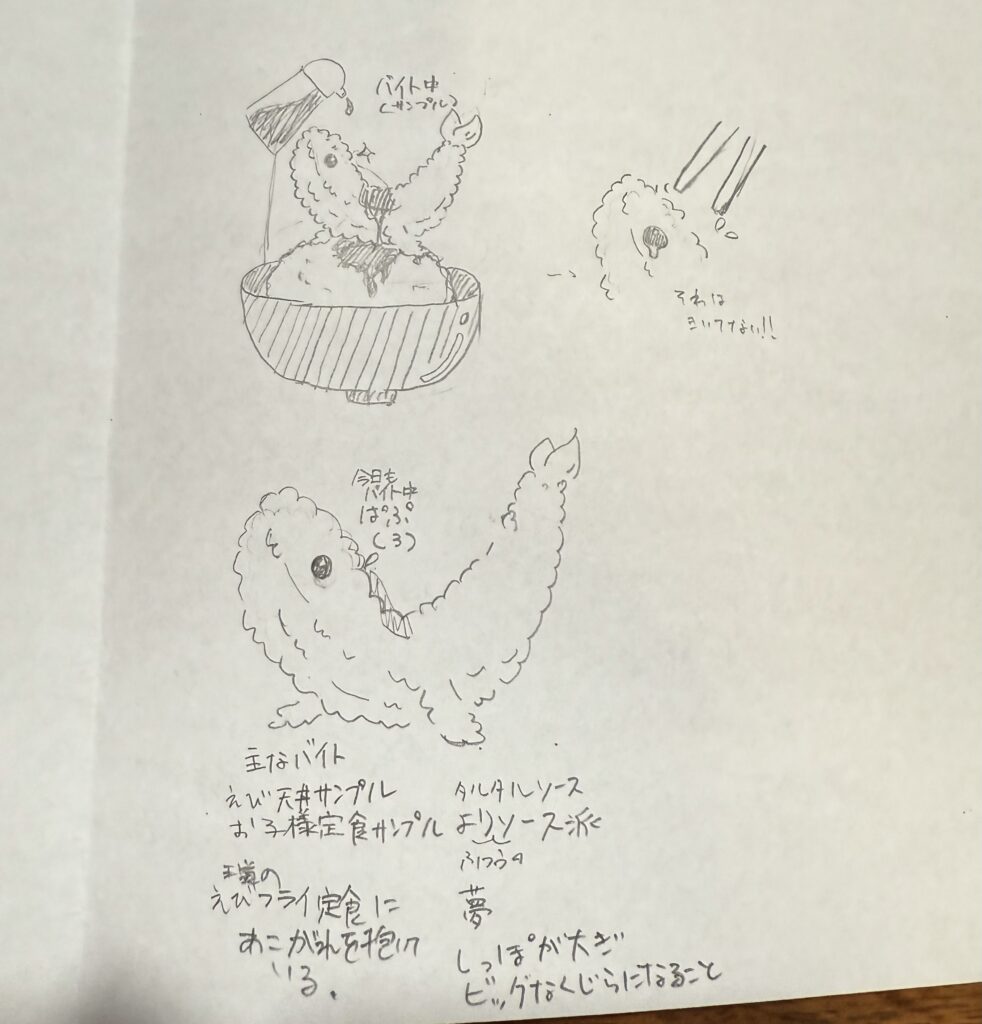 バイト中
(サンプル)
それは
きいてない!!
今日も
バイト中
ぱぷ
(3)
主なバイト
えび天丼サンプル
お子様定食サンプル
隣の
えびフライ定食に
あこがれを抱いて
いる.
タルタルソース
よりソース派
ふつうの
夢
しっぽが大きい
ビッグなくじらになること